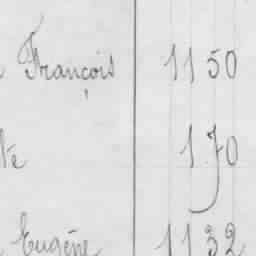 François 1150
te 1.70
Eugène 1132